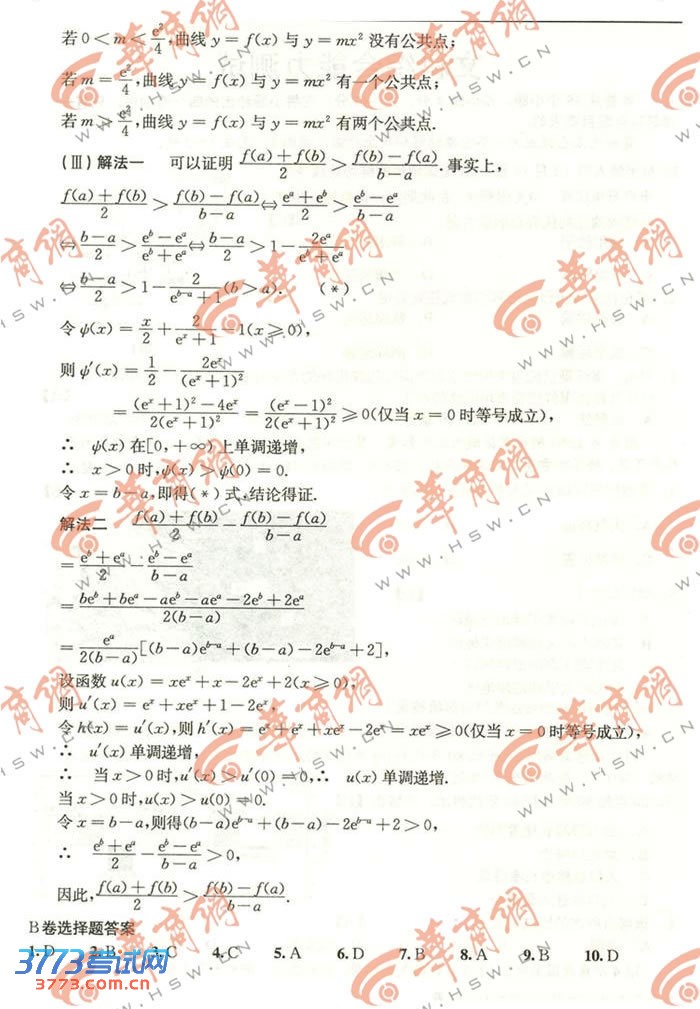 若0<m<e²/4,曲线 y=f(x) 与 y=mx² 没有公共点;
若 m=e²/4,曲线 y=f(x) 与 y=mx² 有一个公共点;
若 m>e²/4,曲线 y=f(x) 与 y=mx² 有两个公共点.
(Ⅲ) 解法一 可以证明 (f(a)+f(b))/2 > (f(b)-f(a))/(b-a). 事实上,
(f(a)+f(b))/2 > (f(b)-f(a))/(b-a) ⇔ (eᵃ+eᵇ)/2 > (eᵇ-eᵃ)/(b-a)
⇔ (b-a)/2 > (eᵇ-eᵃ)/(eᵇ+eᵃ) ⇔ (b-a)/2 > 1-2eᵃ/(eᵇ+eᵃ)
⇔ (b-a)/2 > 1-2/(eᵇ⁻ᵃ+1) (b>a). (*)
令 ψ(x)=x/2+2/(eˣ+1)-1(x≥0),
则 ψ′(x)=1/2-2eˣ/(eˣ+1)²
=((eˣ+1)²-4eˣ)/(2(eˣ+1)²)=(eˣ-1)²/(2(eˣ+1)²)≥0(仅当 x=0时等号成立),
∴ ψ(x)在[0,+∞)上单调递增,
∴ x>0时,ψ(x)>ψ(0)=0.
令 x=b-a,即得(*)式,结论得证.
解法二 (f(a)+f(b))/2-(f(b)-f(a))/(b-a)
=(eᵇ+eᵃ)/2-(eᵇ-eᵃ)/(b-a)
=(beᵇ+beᵃ-aeᵇ-aeᵃ-2eᵇ+2eᵃ)/(2(b-a))
=eᵃ/(2(b-a))[(b-a)eᵇ⁻ᵃ+(b-a)-2eᵇ⁻ᵃ+2],
设函数 u(x)=xeˣ+x-2eˣ+2(x≥0),
则 u′(x)=eˣ+xeˣ+1-2eˣ,
令 h(x)=u′(x),则 h′(x)=eˣ+eˣ+xeˣ-2eˣ=xeˣ≥0(仅当 x=0时等号成立),
∴ u′(x)单调递增,
∴ 当 x>0时,u′(x)>u′(0)=0,∴ u(x)单调递增.
当 x>0时,u(x)>u(0)=0.
令 x=b-a,则得(b-a)eᵇ⁻ᵃ+(b-a)-2eᵇ⁻ᵃ+2>0,
∴ (eᵇ+eᵃ)/2-(eᵇ-eᵃ)/(b-a)>0,
因此,(f(a)+f(b))/2 > (f(b)-f(a))/(b-a).
B卷选择题答案
1.D 2.B 3.C 4.C 5.A 6.D 7.B 8.A 9.B 10.D
3773考试网
3773.com.cn
华商网
WWW.HSW.CN